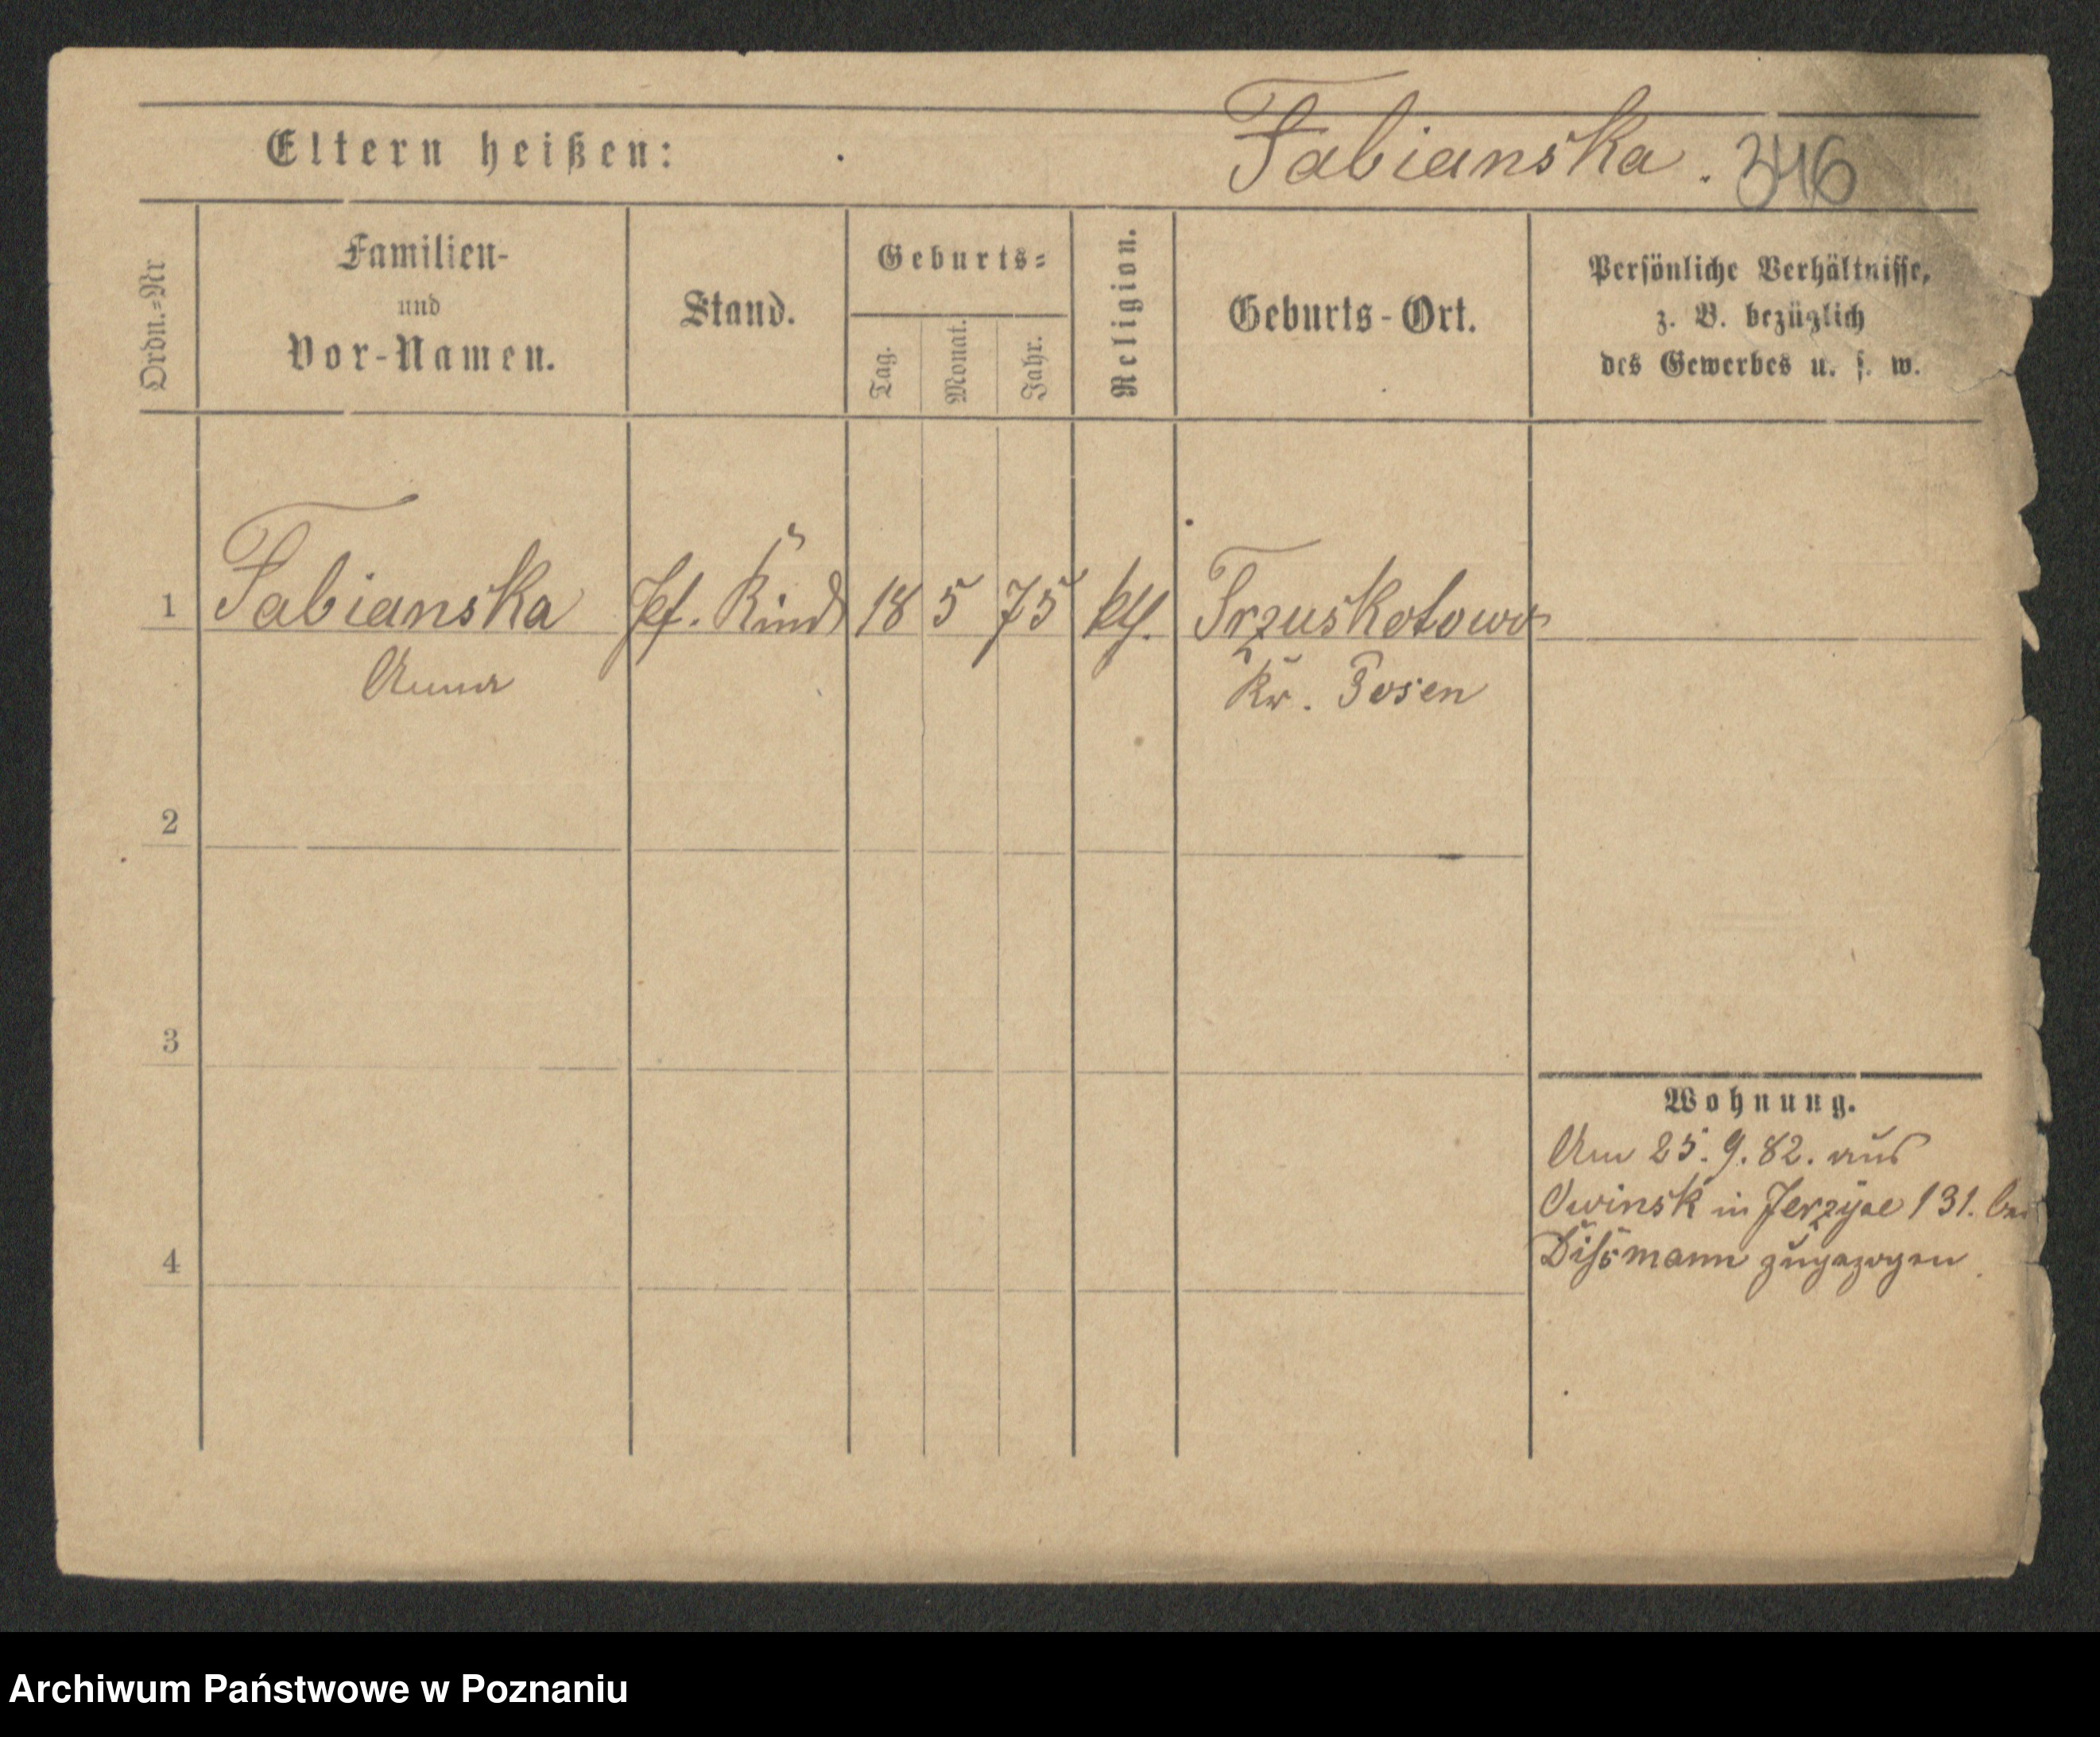 Eltern heißen: Fabianska. 346
Ordn.=Nr
Familien-
und
Vor-Namen.
Stand.
Geburts=
Tag.
Monat.
Jahr.
Religion.
Geburts-Ort.
Persönliche Verhältnisse,
z. B. bezüglich
des Gewerbes u. s. w.
1 Fabianska Kind 18 5 75 kth. Trzuskotowo
Anna Kr. Posen
2
3
4
Wohnung.
Am 25. 9. 82. aus
Owinsk in Jerzyce 131. bei
Dissmann zugezogen.
Archiwum Państwowe w Poznaniu